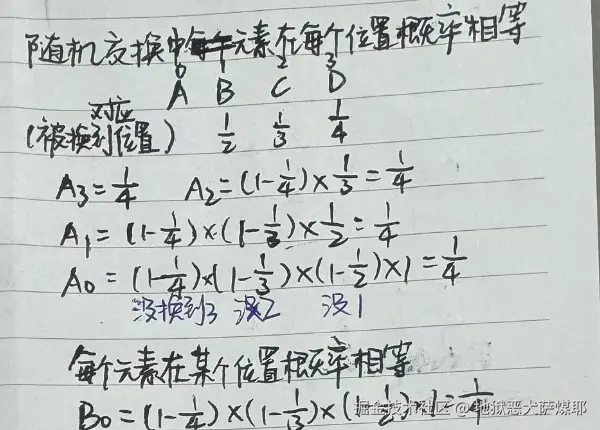 随机交换中每个元素在每个位置概率相等
0 2 3
A B C D
对应
(被换到位置) 1/2 1/3 1/4
A₃=1/4 A₂=(1-1/4)×1/3=1/4
A₁=(1-1/4)×(1-1/3)×1/2=1/4
A₀=(1-1/4)×(1-1/3)×(1-1/2)×1=1/4
没换到3 没2 没1
每个元素在某个位置概率相等
B₀=(1-1/4)×(1-1/3)×(1-1/2)×1=1/4
掘金技术社区 @ 地狱恶犬萨煤耶